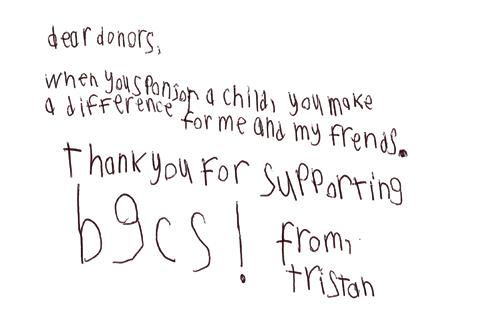 dear donors,
when you sponsor a child, you make
a difference for me and my frends.
thank you for supporting
bgcs!
from,
tristan